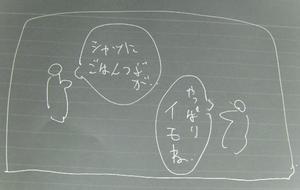 シャツに
ごはんつぶ
が、
やっぱり
イモね、